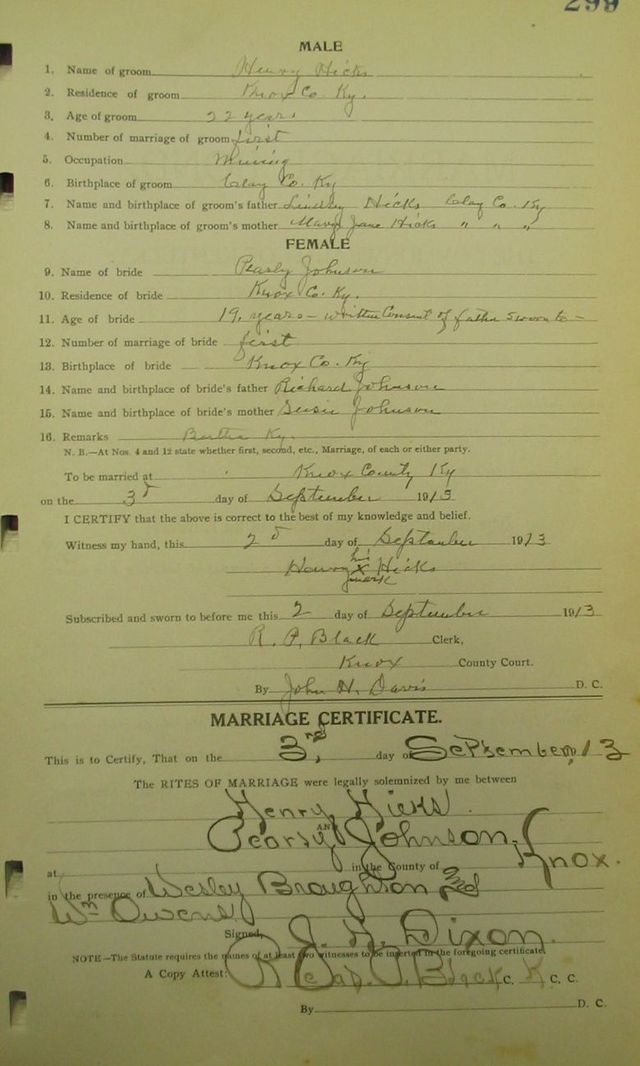 299
MALE
1. Name of groom Henry Hicks
2. Residence of groom Knox Co. Ky.
3. Age of groom 22 years
4. Number of marriage of groom first
5. Occupation Mining
6. Birthplace of groom Clay Co. Ky
7. Name and birthplace of groom's father Lindsey Hicks Clay Co. Ky
8. Name and birthplace of groom's mother Mary Jane Hicks " " "
FEMALE
9. Name of bride Pearly Johnson
10. Residence of bride Knox Co. Ky.
11. Age of bride 19, years - written Consent of father sworn to -
12. Number of marriage of bride first
13. Birthplace of bride Knox Co. Ky
14. Name and birthplace of bride's father Richard Johnson
15. Name and birthplace of bride's mother Susie Johnson
16. Remarks Bertha Ky.
N. B.—At Nos. 4 and 12 state whether first, second, etc., Marriage, of each or either party.
To be married at Knox County Ky
on the 3d day of September 1913
I CERTIFY that the above is correct to the best of my knowledge and belief.
Witness my hand, this 2d day of September 1913
his
Henry x Hicks
mark
Subscribed and sworn to before me this 2 day of September 1913
R. P. Black Clerk,
Knox County Court.
By John H. Davis D. C.
MARRIAGE CERTIFICATE.
This is to Certify, That on the 3rd, day of September, 13
The RITES OF MARRIAGE were legally solemnized by me between
Henry Hicks.
AND
Pearsy Johnson.
at in the County of Knox.
in the presence of Wesley Broughton and
Wm Owens
Signed, J. H. Dixon.
NOTE—The Statute requires the names of at least two witnesses to be inserted in the foregoing certificate.
A Copy Attest: Black C. K. C. C.
By D. C.